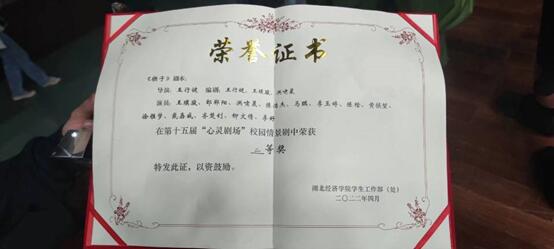 荣誉证书
《椅子》剧本:
导演:王行健 编辑:王行健、王琪璇、洪啸晨
演员:王琪璇、郎郡阳、洪啸晨、陈浩杰、马骐、李玉婷、陈绘、黄祺堃、
徐雅梦、戴嘉威、李楚钊、柳文倩、李好
在第十五届“心灵剧场”校园情景剧中荣获
二等奖
特发此证,以资鼓励。
湖北经济学院学生工作部(处)
二〇二二年四月